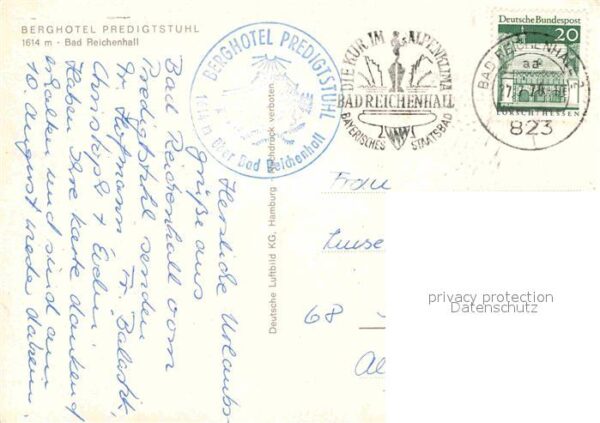 BERGHOTEL PREDIGTSTUHL
1614 m - Bad Reichenhall
BERGHOTEL PREDIGTSTUHL
1614 m über Bad Reichenhall
DIE KUR IM ALPENKLIMA
BAD REICHENHALL
BAYERISCHES STAATSBAD
Deutsche Bundespost
20
LORSCH/HESSEN
BAD REICHENHALL 2
aa
823
Herzliche Urlaubs-
grüße aus
Bad Reichenhall vom
Predigtstuhl senden
Fr. Hofmann Fr.
Christof + Evelin
Haben Ihre Karte dankend
erhalten und sind am
10. August wieder daheim.
Deutsche Luftbild KG, Hamburg Nachdruck verboten
Frau
Luise
68
privacy protection
Datenschutz